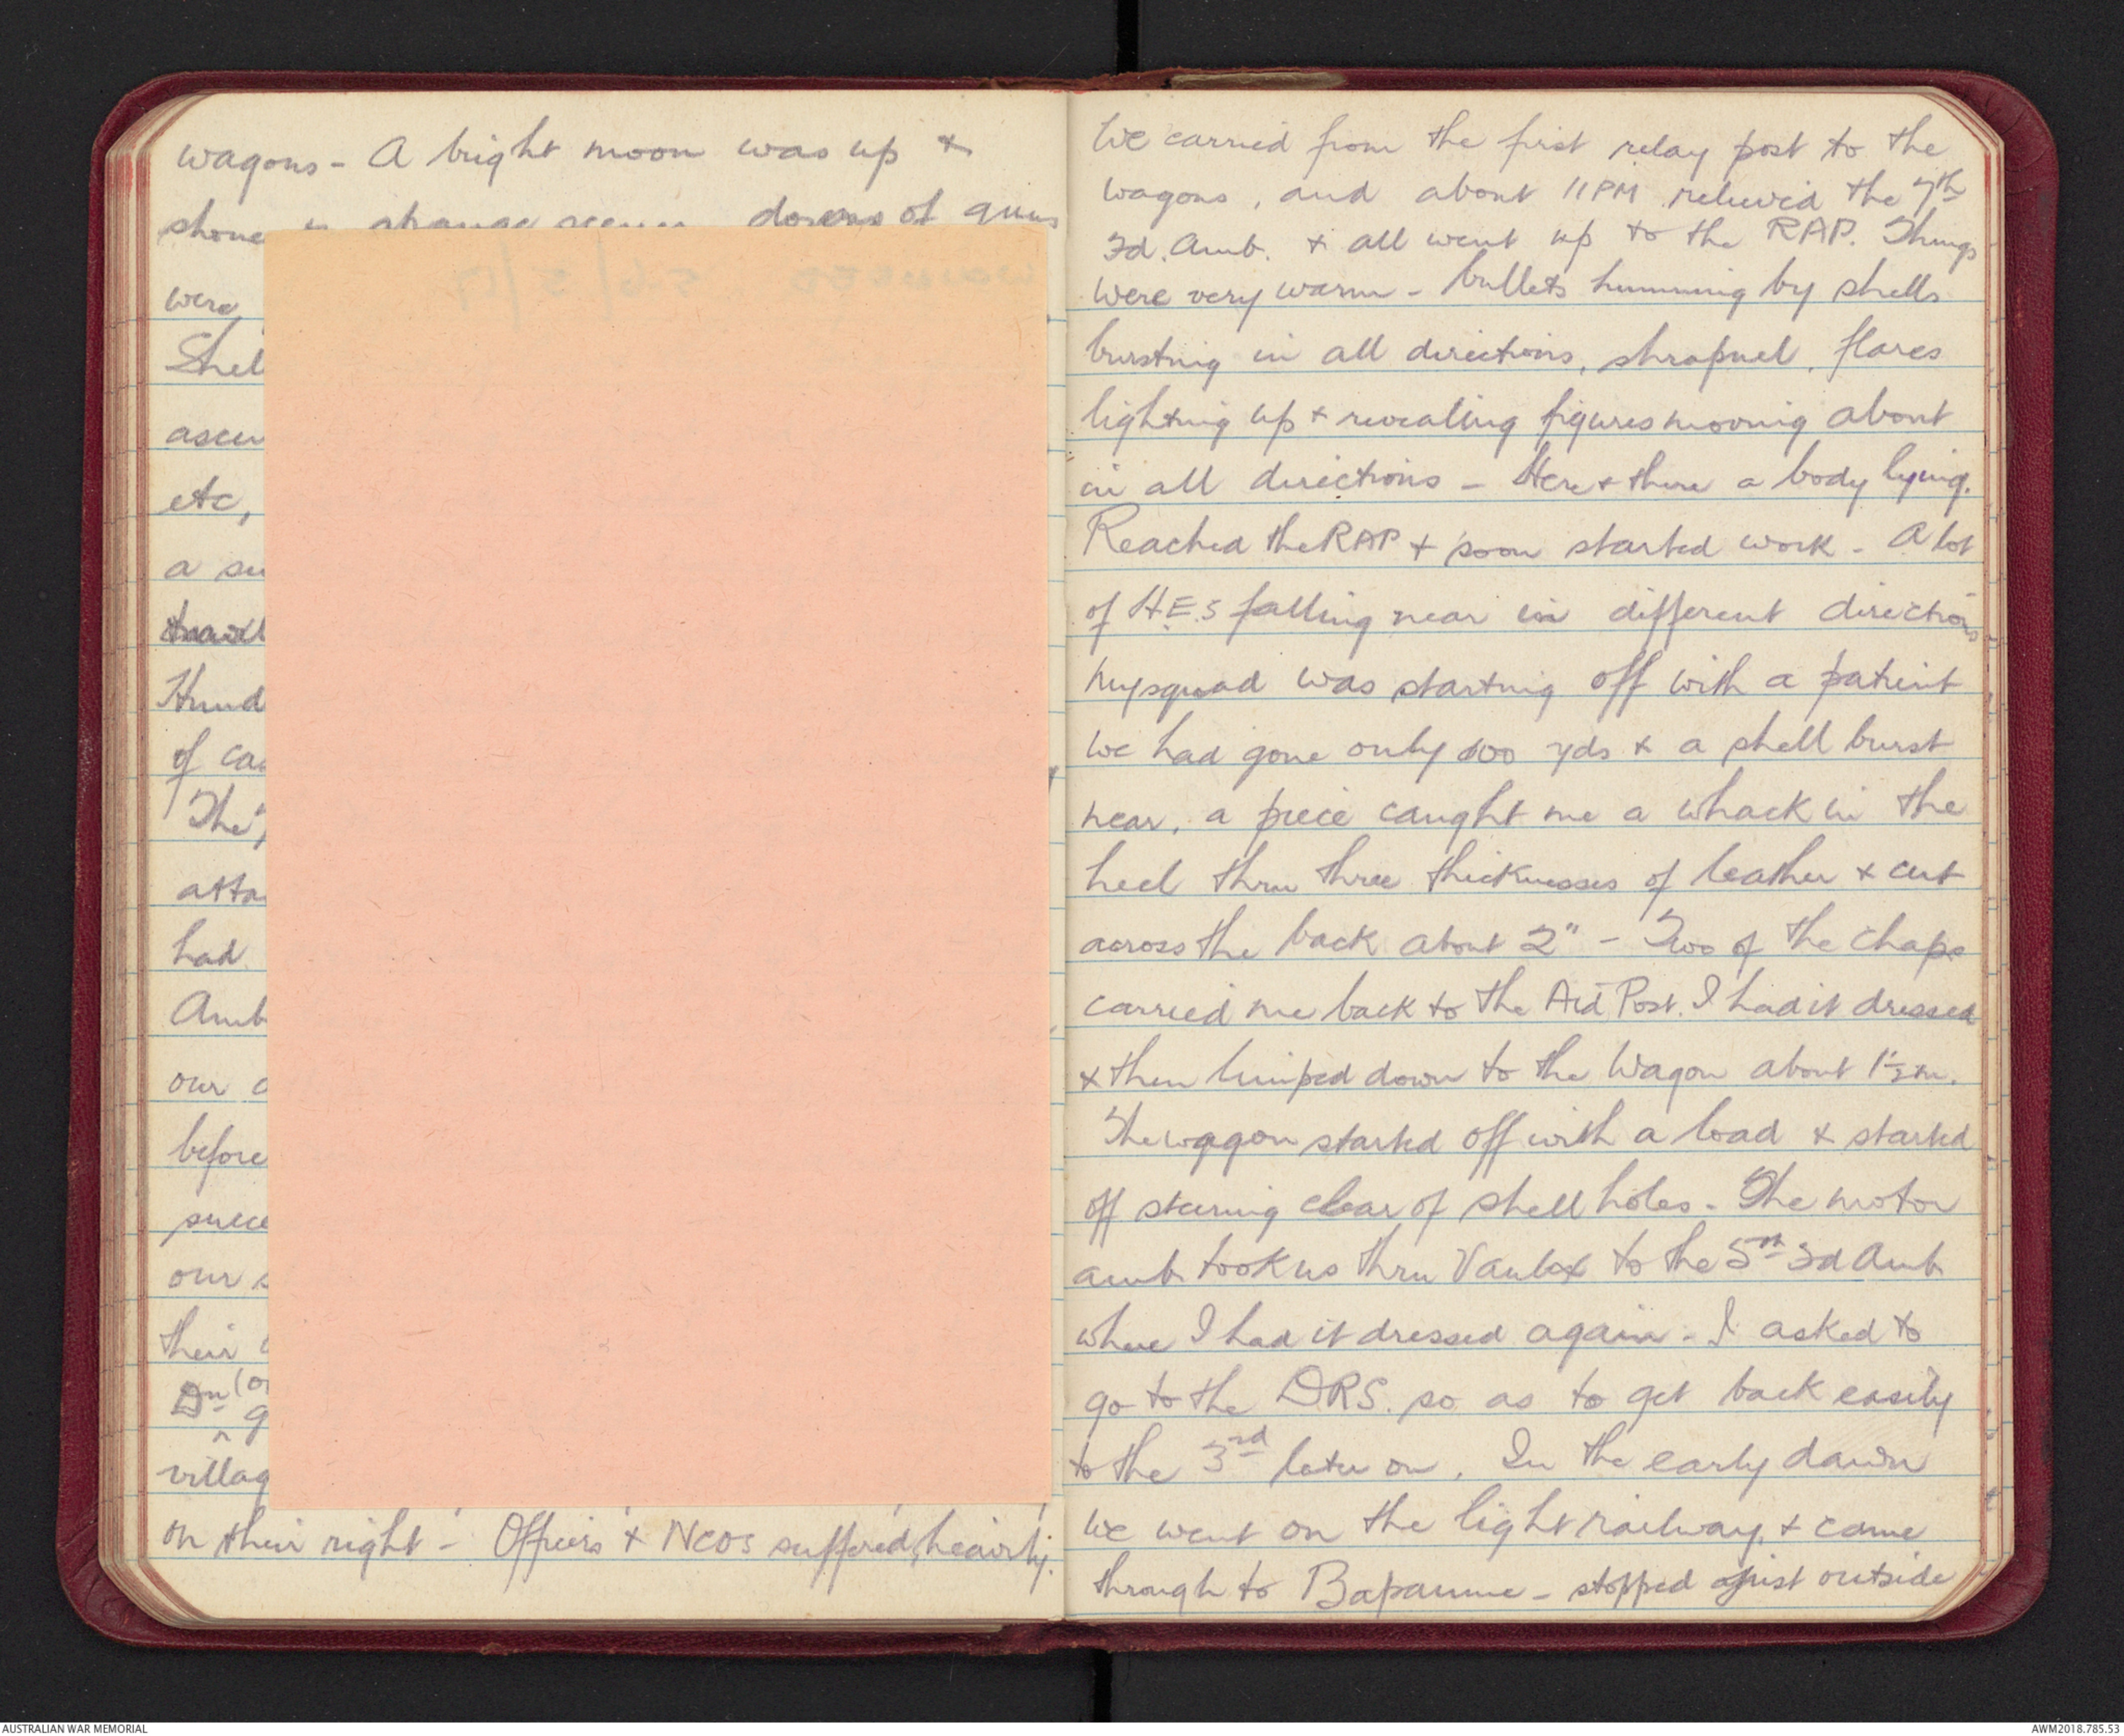 wagons - A bright moon was up &
shone strange scenes dozens of guns
were
Shel
ascen
etc,
a su
Hund
of cas
The
atta
had
Amb
our
before
succe
our s
their
Dn (or
g
villag
on their right - Officers & NCOs suffered heavily.
We carried from the first relay post to the
wagons, and about 11PM relieved the 7th
Fd. Amb. & all went up to the RAP. Things
were very warm - bullets humming by shells
bursting in all directions, shrapnel, flares
lighting up & revealing figures moving about
in all directions - Here & there a body lying.
Reached the RAP & soon started work - A lot
of H.E.s falling near in different directions
my squad was starting off with a patient
we had gone only 600 yds & a shell burst
near, a piece caught me a whack in the
heel thru three thicknesses of leather & cut
across the back about 2" - Two of the chaps
carried me back to the Aid Post. I had it dressed
& then limped down to the Wagon about 1½m.
The waggon started off with a load & started
off steering clear of shell holes. The motor
amb. took us thru Vaulx to the 5th Fd Amb
where I had it dressed again. I asked to
go to the DRS. so as to get back easily
to the 3rd later on. In the early dawn
we went on the light railway & came
through to Bapaume - stopped just outside
AUSTRALIAN WAR MEMORIAL
AWM2018.785.53